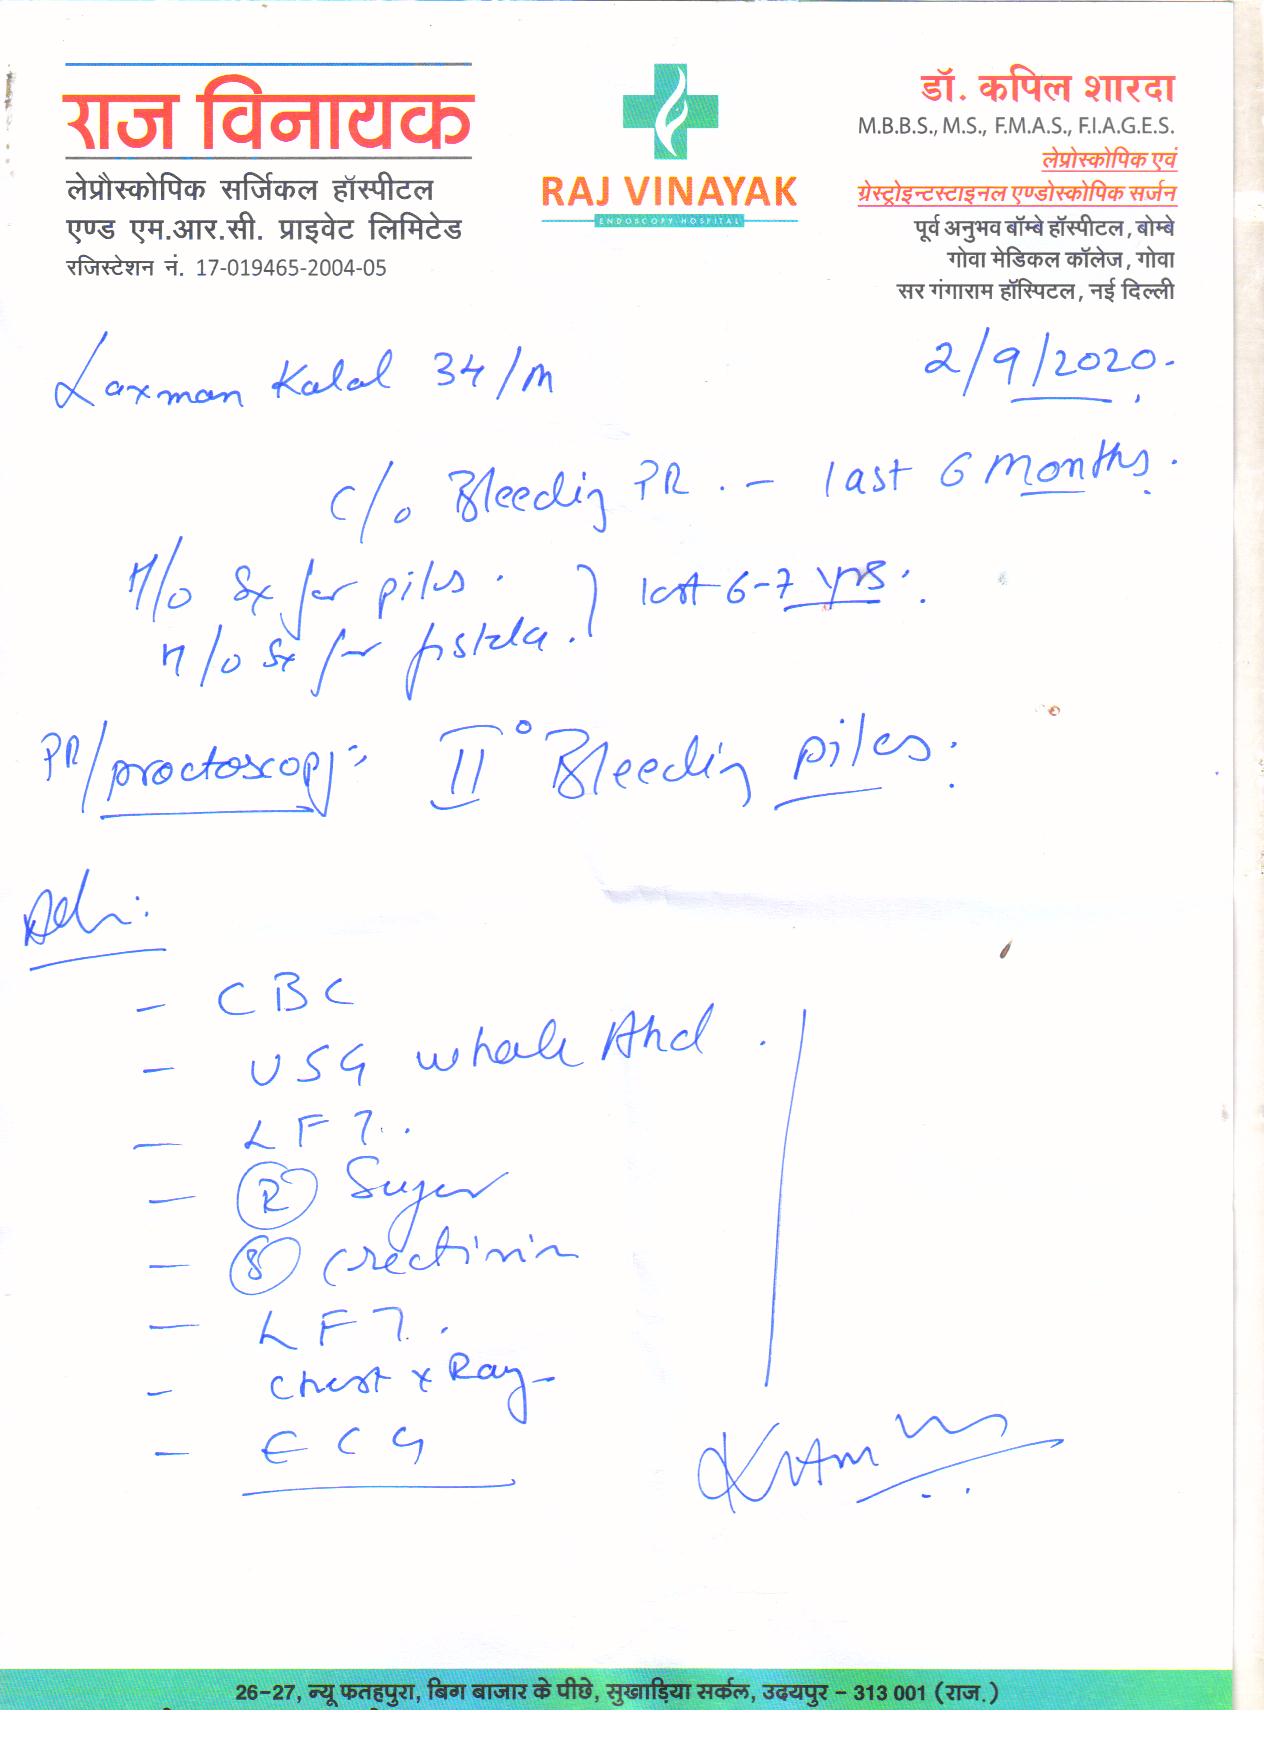 राज विनायक
लेप्रौस्कोपिक सर्जिकल हॉस्पीटल
एण्ड एम.आर.सी. प्राइवेट लिमिटेड
रजिस्टेशन नं. 17-019465-2004-05
RAJ VINAYAK
ENDOSCOPY HOSPITAL
डॉ. कपिल शारदा
M.B.B.S., M.S., F.M.A.S., F.I.A.G.E.S.
लेप्रोस्कोपिक एवं
ग्रेस्ट्रोइन्टस्टाइनल एण्डोस्कोपिक सर्जन
पूर्व अनुभव बॉम्बे हॉस्पीटल, बोम्बे
गोवा मेडिकल कॉलेज, गोवा
सर गंगाराम हॉस्पिटल, नई दिल्ली
Laxman Kalal 34/M 2/9/2020.
C/o Bleeding PR. - last 6 months.
H/o Sx for piles. } last 6-7 yrs.
H/o Sx for fistula.
PR/proctoscopy:- II° Bleeding piles.
Adv:
- CBC
- USG whole Abd.
- LFT.
- (R) Sugar
- (S) Creatinin
- LFT.
- Chest x Ray
- ECG
26-27, न्यू फतहपुरा, बिग बाजार के पीछे, सुखाड़िया सर्कल, उदयपुर - 313 001 (राज.)